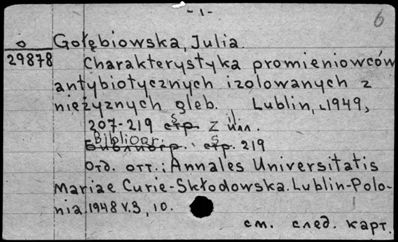 - 1 -
6
Gołębiowska, Julia.
0
29878
Charakterystyka promieniowców
antybiotycznych izolowanych z
nieżyznych gleb. Lublin, 1949,
207-219 s z ил.
Bibliogr.: s. 219
Отд. отт.: Annales Universitatis
Mariae Curie-Skłodowska. Lublin-Polo-
nia 1948 v.3, 10.
см. след. карт.